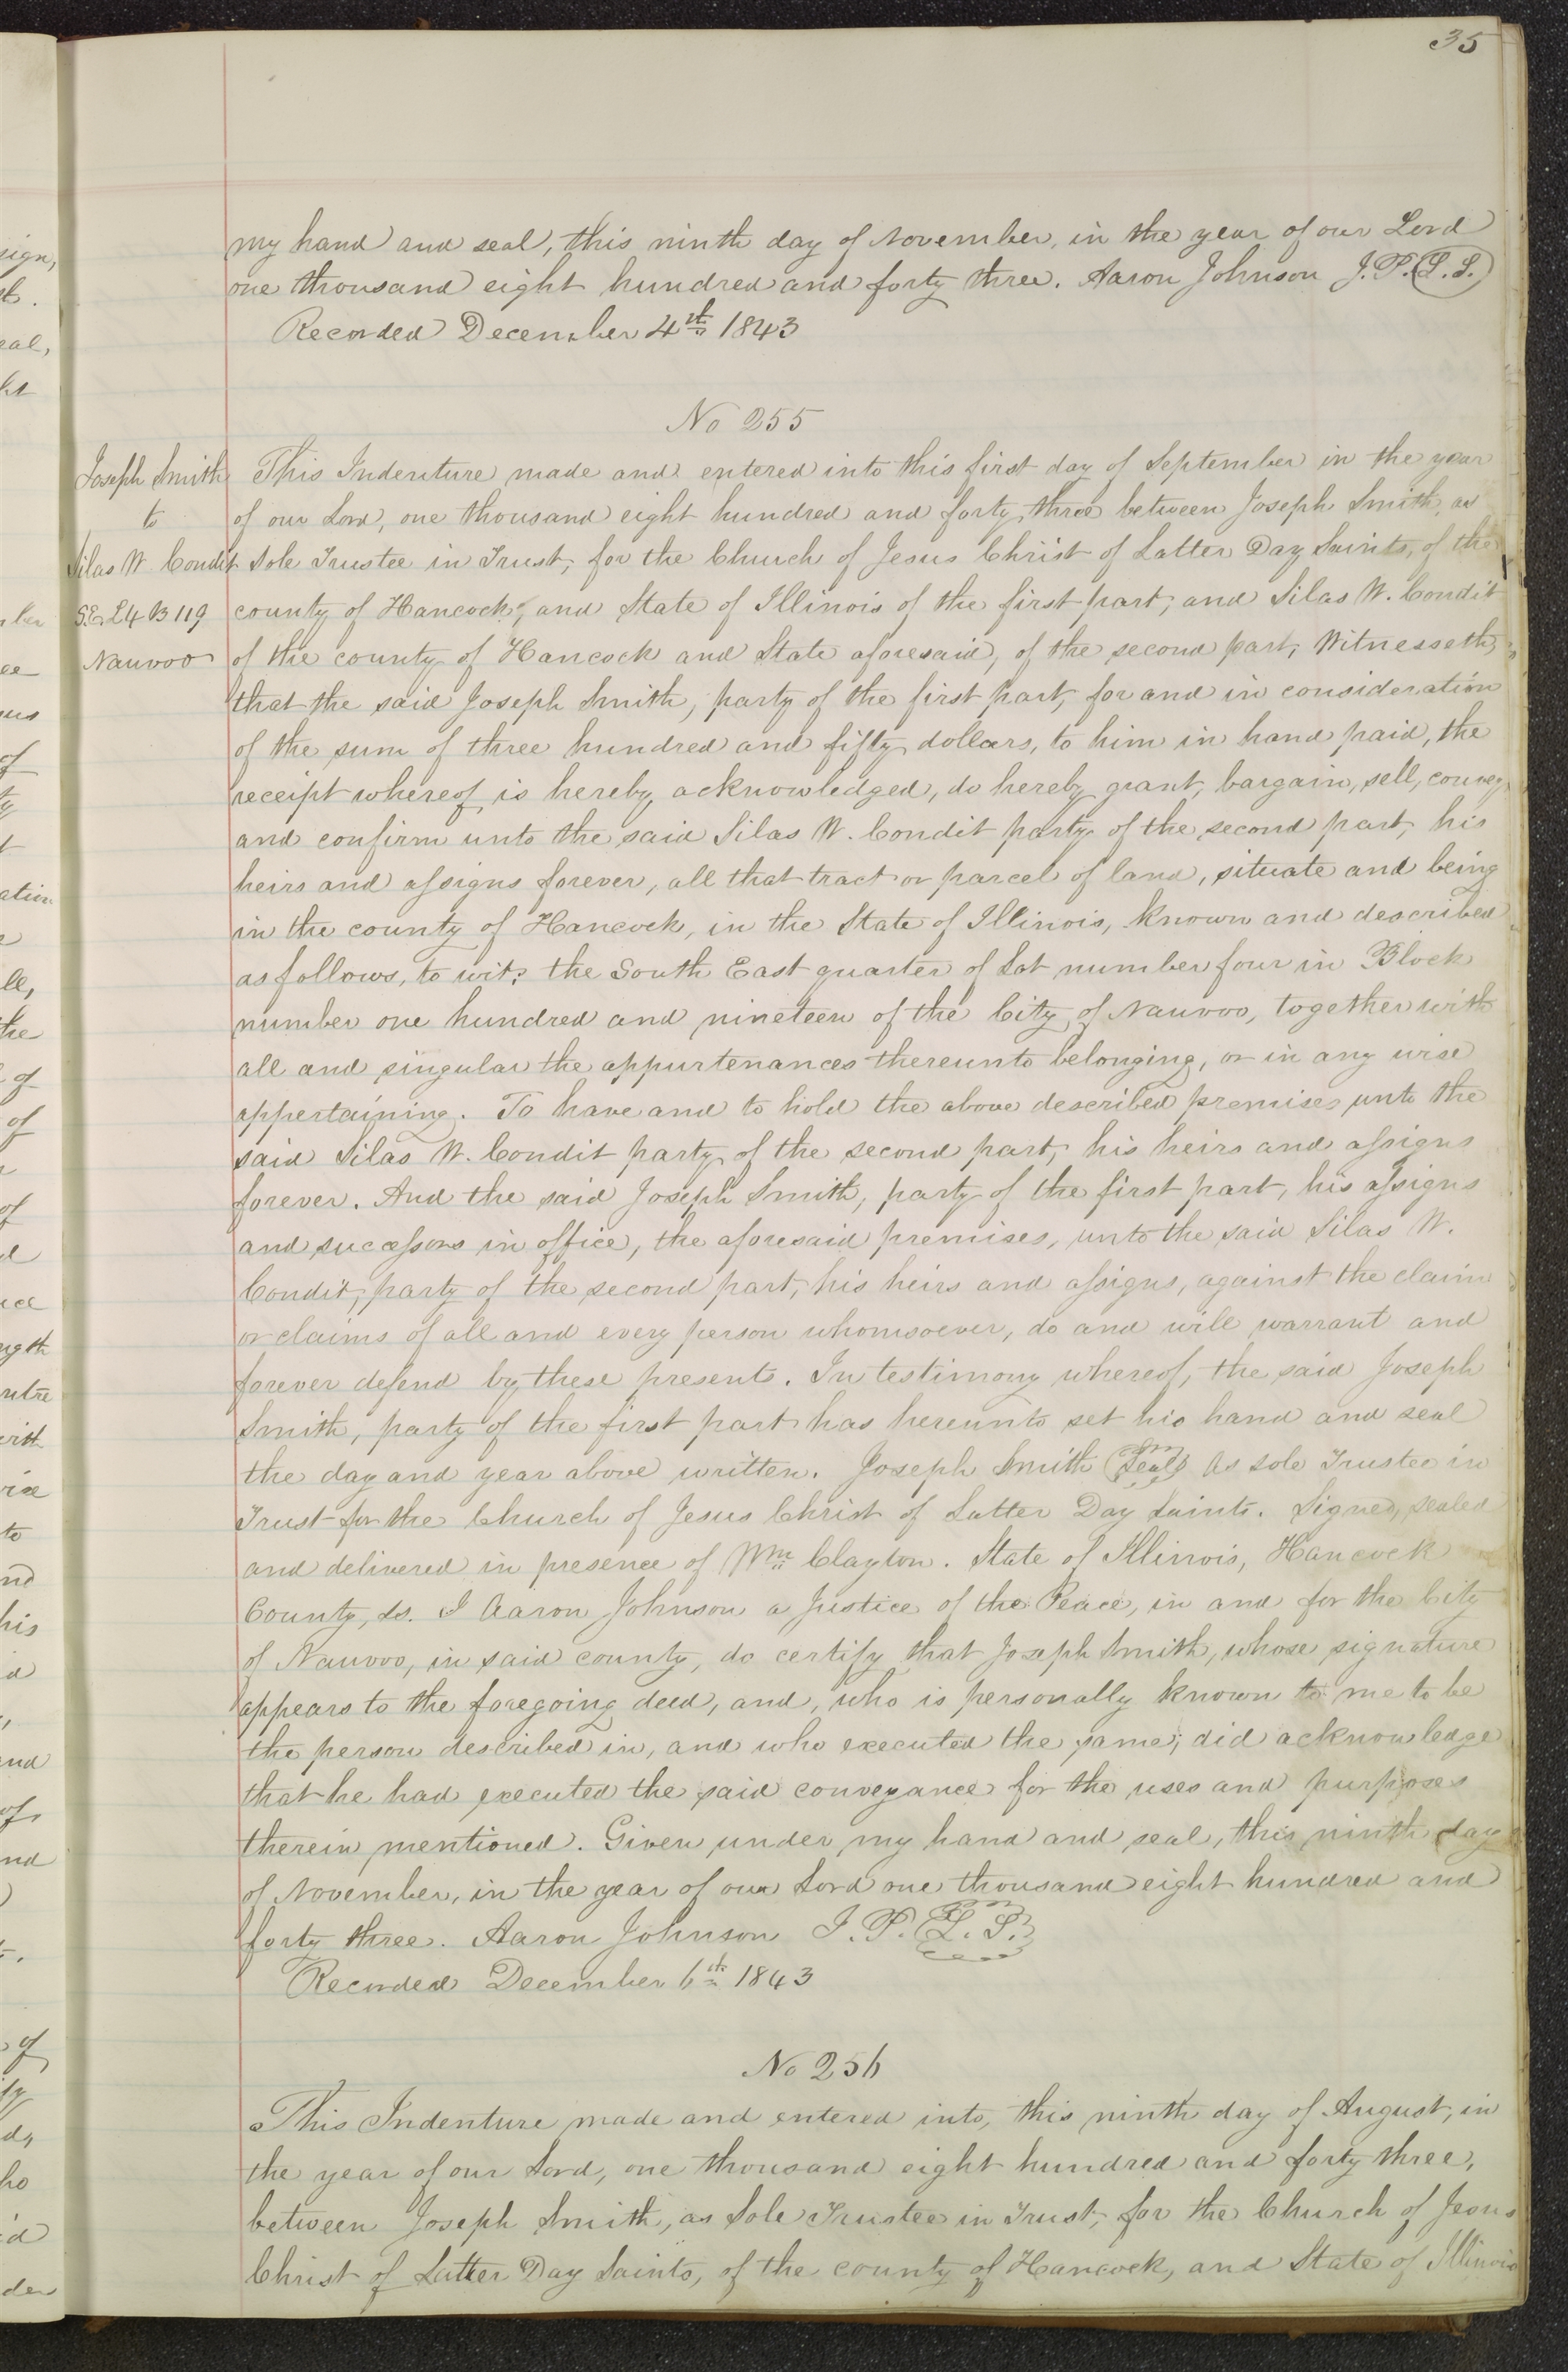 35
my hand and seal, this ninth day of November, in the year of our Lord
one thousand eight hundred and forty three. Aaron Johnson J.P. (L.S.)
Recorded December 4th 1843
No 255
Joseph Smith
to
Silas W. Condit
S.E. L4 B 119
Nauvoo
This Indenture made and entered into this first day of September in the year
of our Lord, one thousand eight hundred and forty three between Joseph Smith, as
Sole Trustee in Trust, for the Church of Jesus Christ of Latter Day Saints, of the
county of Hancock, and State of Illinois of the first part, and Silas W. Condit
of the county of Hancock and State aforesaid, of the second part, Witnesseth,
that the said Joseph Smith, party of the first part, for and in consideration
of the sum of three hundred and fifty dollars, to him in hand paid, the
receipt whereof is hereby acknowledged, do hereby grant, bargain, sell, convey
and confirm unto the said Silas W. Condit party of the second part, his
heirs and assigns forever, all that tract or parcel of land, situate and being
in the county of Hancock, in the State of Illinois, known and described
as follows, to wit: the South East quarter of Lot number four in Block
number one hundred and nineteen of the City of Nauvoo, together with
all and singular the appurtenances thereunto belonging, or in any wise
appertaining. To have and to hold the above described premises unto the
said Silas W. Condit party of the second part, his heirs and assigns
forever. And the said Joseph Smith, party of the first part, his assigns
and successors in office, the aforesaid premises, unto the said Silas W.
Condit, party of the second part, his heirs and assigns, against the claim
or claims of all and every person whomsoever, do and will warrant and
forever defend by these presents. In testimony whereof, the said Joseph
Smith, party of the first part has hereunto set his hand and seal
the day and year above written. Joseph Smith (Seal) As sole Trustee in
Trust for the Church of Jesus Christ of Latter Day Saints. Signed, sealed
and delivered in presence of Wm Clayton. State of Illinois, Hancock
County, ss. I Aaron Johnson a Justice of the Peace, in and for the City
of Nauvoo, in said county, do certify that Joseph Smith, whose signature
appears to the foregoing deed, and, who is personally known to me to be
the person described in, and who executed the same, did acknowledge
that he had executed the said conveyance for the uses and purposes
therein mentioned. Given under my hand and seal, this ninth day
of November, in the year of our Lord one thousand eight hundred and
forty three. Aaron Johnson J.P. (L.S.)
Recorded December 6th 1843
No 256
This Indenture made and entered into, this ninth day of August, in
the year of our Lord, one thousand eight hundred and forty three,
between Joseph Smith, as Sole Trustee in Trust, for the Church of Jesus
Christ of Latter Day Saints, of the county of Hancock, and State of Illinois